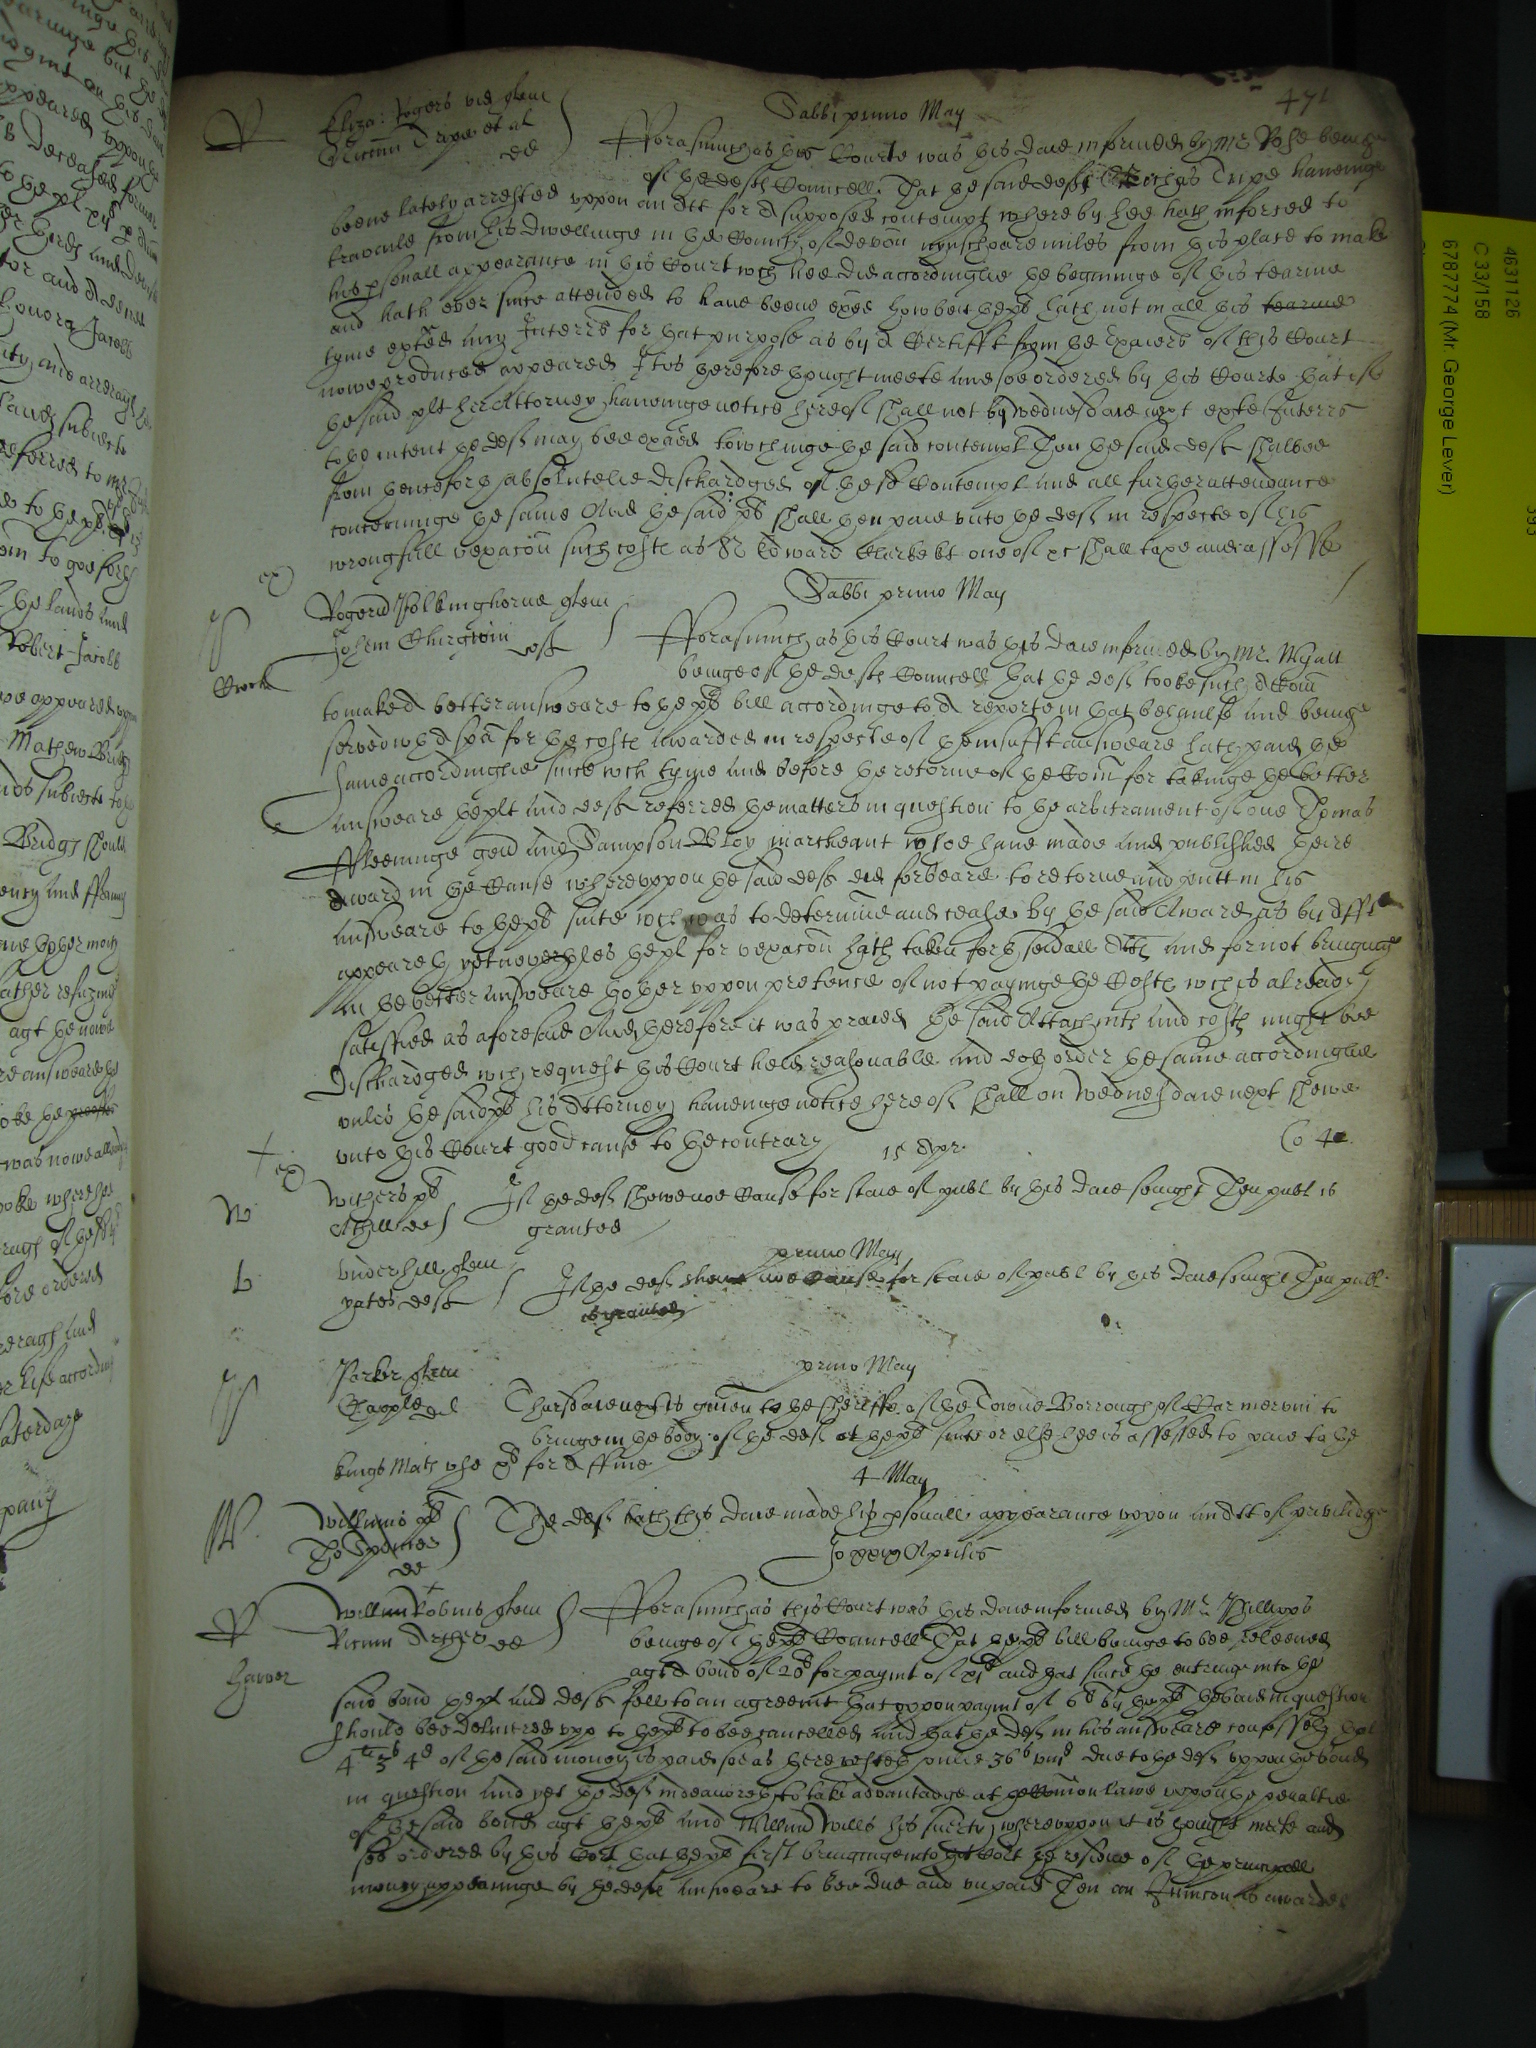 471
Sabbi primo May
R
Eliza: Rogers vid quer
Ricum Tripe et al
def
Fforasmuch as this Courte was this daie informed by Mr Rose beinge
of the defts Councell That the said deft Tripe haveinge
beene lately arrested vppon an Att for a supposed contempt whereby hee hath inforced to
travaile from his dwellinge in the County of Devon miles from this place to make
his psonall appearance in this Court wch hee did accordinglie the beginninge of this tearme
and hath ever since attended to have beene exãed howbeit the pt hath not in all this tearme
tyme exhted any Interrs for that purpose as by a Certifft from the Exãiers of this Court
nowe produced appeared It is therefore thought meete and soe ordered by this Courte that if
the said plt her Attorney haveinge notice hereof shall not by wednesdaie next exhte Interrs
to th intent the deft may bee exãied towchinge the said contempt Then the said deft shalbee
from henceforth absolutelie dischardged of the sd Contempt and all further attendance
concerninge the same And the said pt shall then paie vnto the deft in respecte of this
wrongfull vexacõn such costs as Sr Edward Clarke kt one of &c shall taxe and assesse
ex
Sabbi primo May
Rogerus Holbinghorne quer
Johem Chirgwin deft
Fforasmuch as this Court was this daie informed by Mr. Wyatt
beinge of the defts Councell that the deft tooke such a Comn
to make a better answeare to the pts bill accordinge to a reporte in that behaulfe and beinge
served wth a spã for the costs awarded in respecte of the insufft answeare hath paid the
same accordinglie since wch tyme and before the retorne of the Comn for takinge the better
answeare the plt and deft referred the matters in question to the arbitrament of one Thomas
Ffleminge gent and Sampson Bloy marcheant whoe have made and published theire
award in the Cause wherevppon the said deft did forbeare to retorne and putt in his
answeare to the pts suite wch was to determine and cease by the said Award, as by afft
appeareth yet nevertheles the pt for vexacõn hath taken forth sevall Atts and for not bringinge
in the better answeare thother vppon pretence of not payinge the Costs wch is already
satisfied as aforesaid And therefore it was praied the said Attachmts and costs might bee
dischardged wch request this Court held reasonable and doth order the same accordinglie
vnles the said pt his Attorney haveinge notice hereof shall on Wednesdaie next shewe
vnto this Court good cause to the contrary
15 Apr.
Co 4
ex
W
Withers pt
def
If the deft shewe noe Cause for staie of publ by this daie senight Then publ is
graunted
L
primo May
Vnderhill quer
yates deft
If the deft shewe noe Cause for staie of publ by this daie senight Then publ
is graunted
primo May
Parker quer
Chapple def
Thursdaie next is given to the Sheriffe of the Towne & Borrough of Carmerthin to
bringe in the body of the deft at the pts suite or else hee is assessed to paie to the
kings Matie vse xs for a Ffine
4 May
W.
Williams pt
def
The deft hath this daie made his psonall appearance vppon an Att of priviledge
Jo xxix Aprilis
R
Willim Robins quer
Ricum Archer def
Fforasmuch as this Court was this daie informed by Mr. Phillipps
beinge of the pts Councell That the pts bill beinge to bee releeved
agt a bond of 20l for paymt of xl and that since the entringe into the
said bond the pt and deft fell to an agreemt that vppon paymt of 6l by the pt the bond in question
should bee delivered vpp to the pt to bee cancelled and that the deft in his answeare confesseth that
4l 3s 4d of the said money is paid soe as there resteth onlie 36s viijd due to the deft vppon the bond
in question and yet the deft indeavoreth to take advantadge at the comon lawe vppon the penaltie
of the said bond agt the pt and Willm Wills his suerty wherevppon it is thought meete and
soe ordered by this Cort that the pt first bringinge into this Cort the residue of the principall
money appearinge by the defts answeare to bee due and vnpaid Then an Iniuncon is awarded
4631126
C 33/158
6787774 (Mr. George Lever)